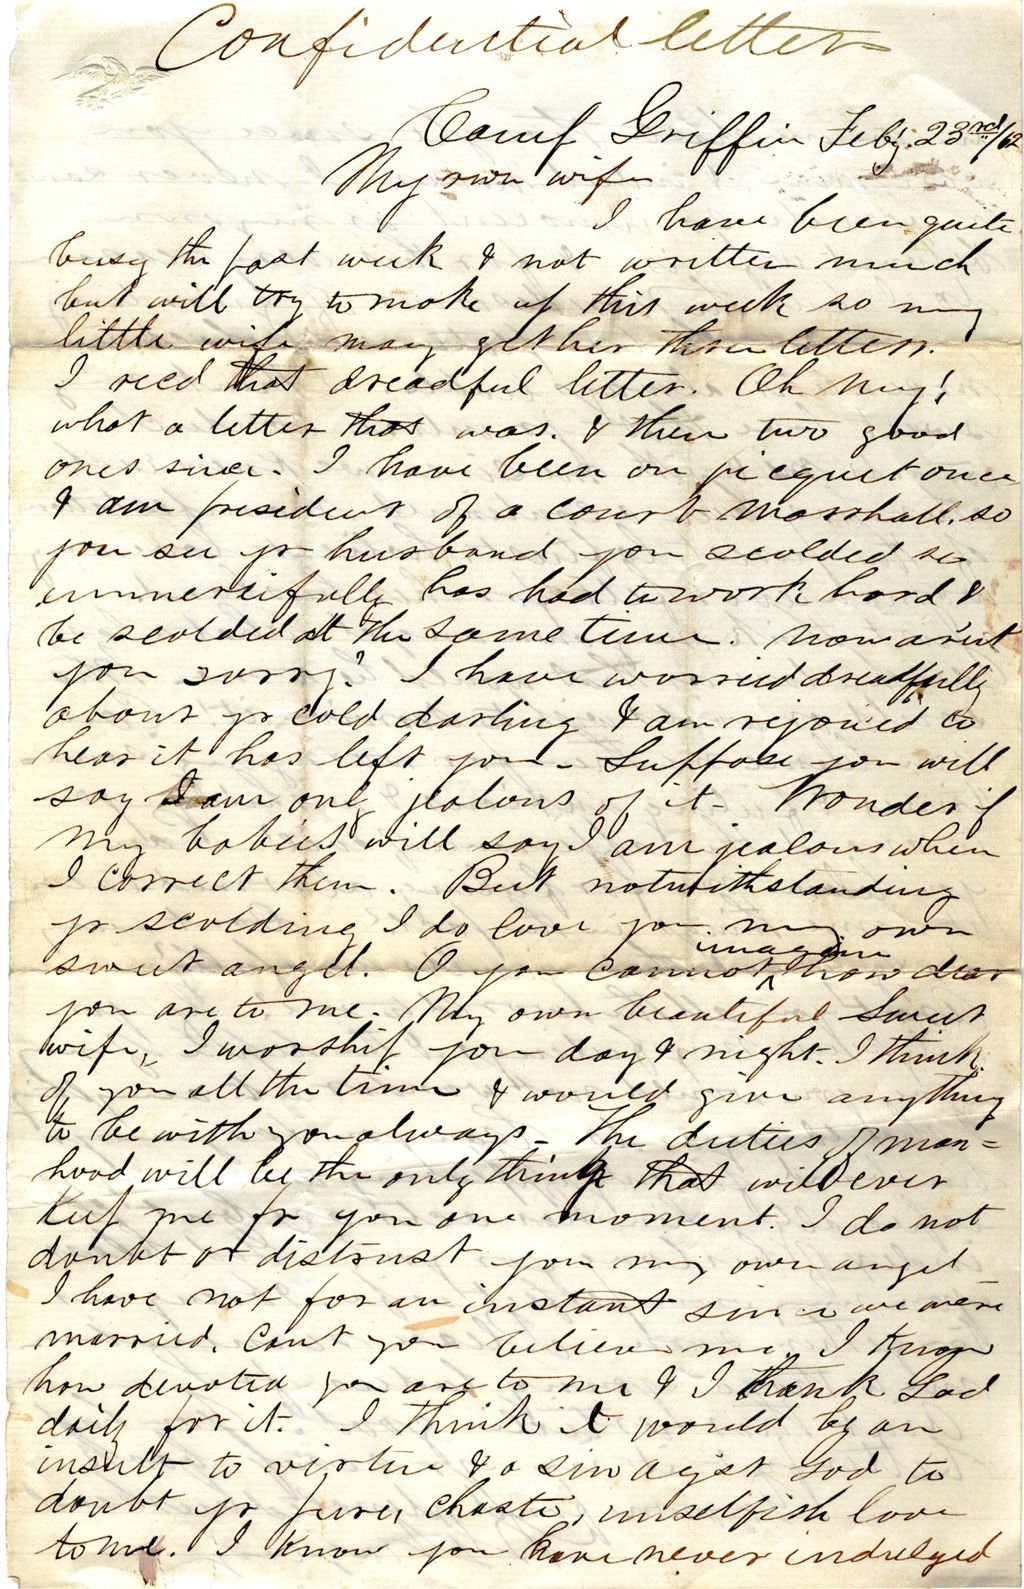 Confidential letter
Camp Griffin Feby. 23rd/62
My own wife
I have been quite
busy the past week & not written much
but will try to make up this week so my
little wife may get her three letters.
I recd that dreadful letter. Oh my!
what a letter that was. & then two good
ones since. I have been on picquet once
& am president of a court Marshall. so
you see yr husband you scolded so
unmercifully has had to work hard &
be scolded at the same time. now arnt
you sorry? I have worried dreadfully
about yr cold darling & am rejoiced to
hear it has left you - Suppose you will
say I am only jealous of it - Wonder if
my babies will say I am jealous when
I correct them. But notwithstanding
yr scolding I do love you my own
sweet angel. O you cannot imagine how dear
you are to me. My own beautiful sweet
wife, I worship you day & night. I think
of you all the time & would give anything
to be with you always - The duties of man=
hood will be the only thing that will ever
keep me fr you one moment. I do not
doubt or distrust you my own angel
I have not for an instant since we were
married. cant you believe me. I know
how devoted you are to me & I thank God
daily for it. I think it would be an
insult to virtue & a sin agst God to
doubt yr pure, chaste, unselfish love
to me. I know you have never indulged